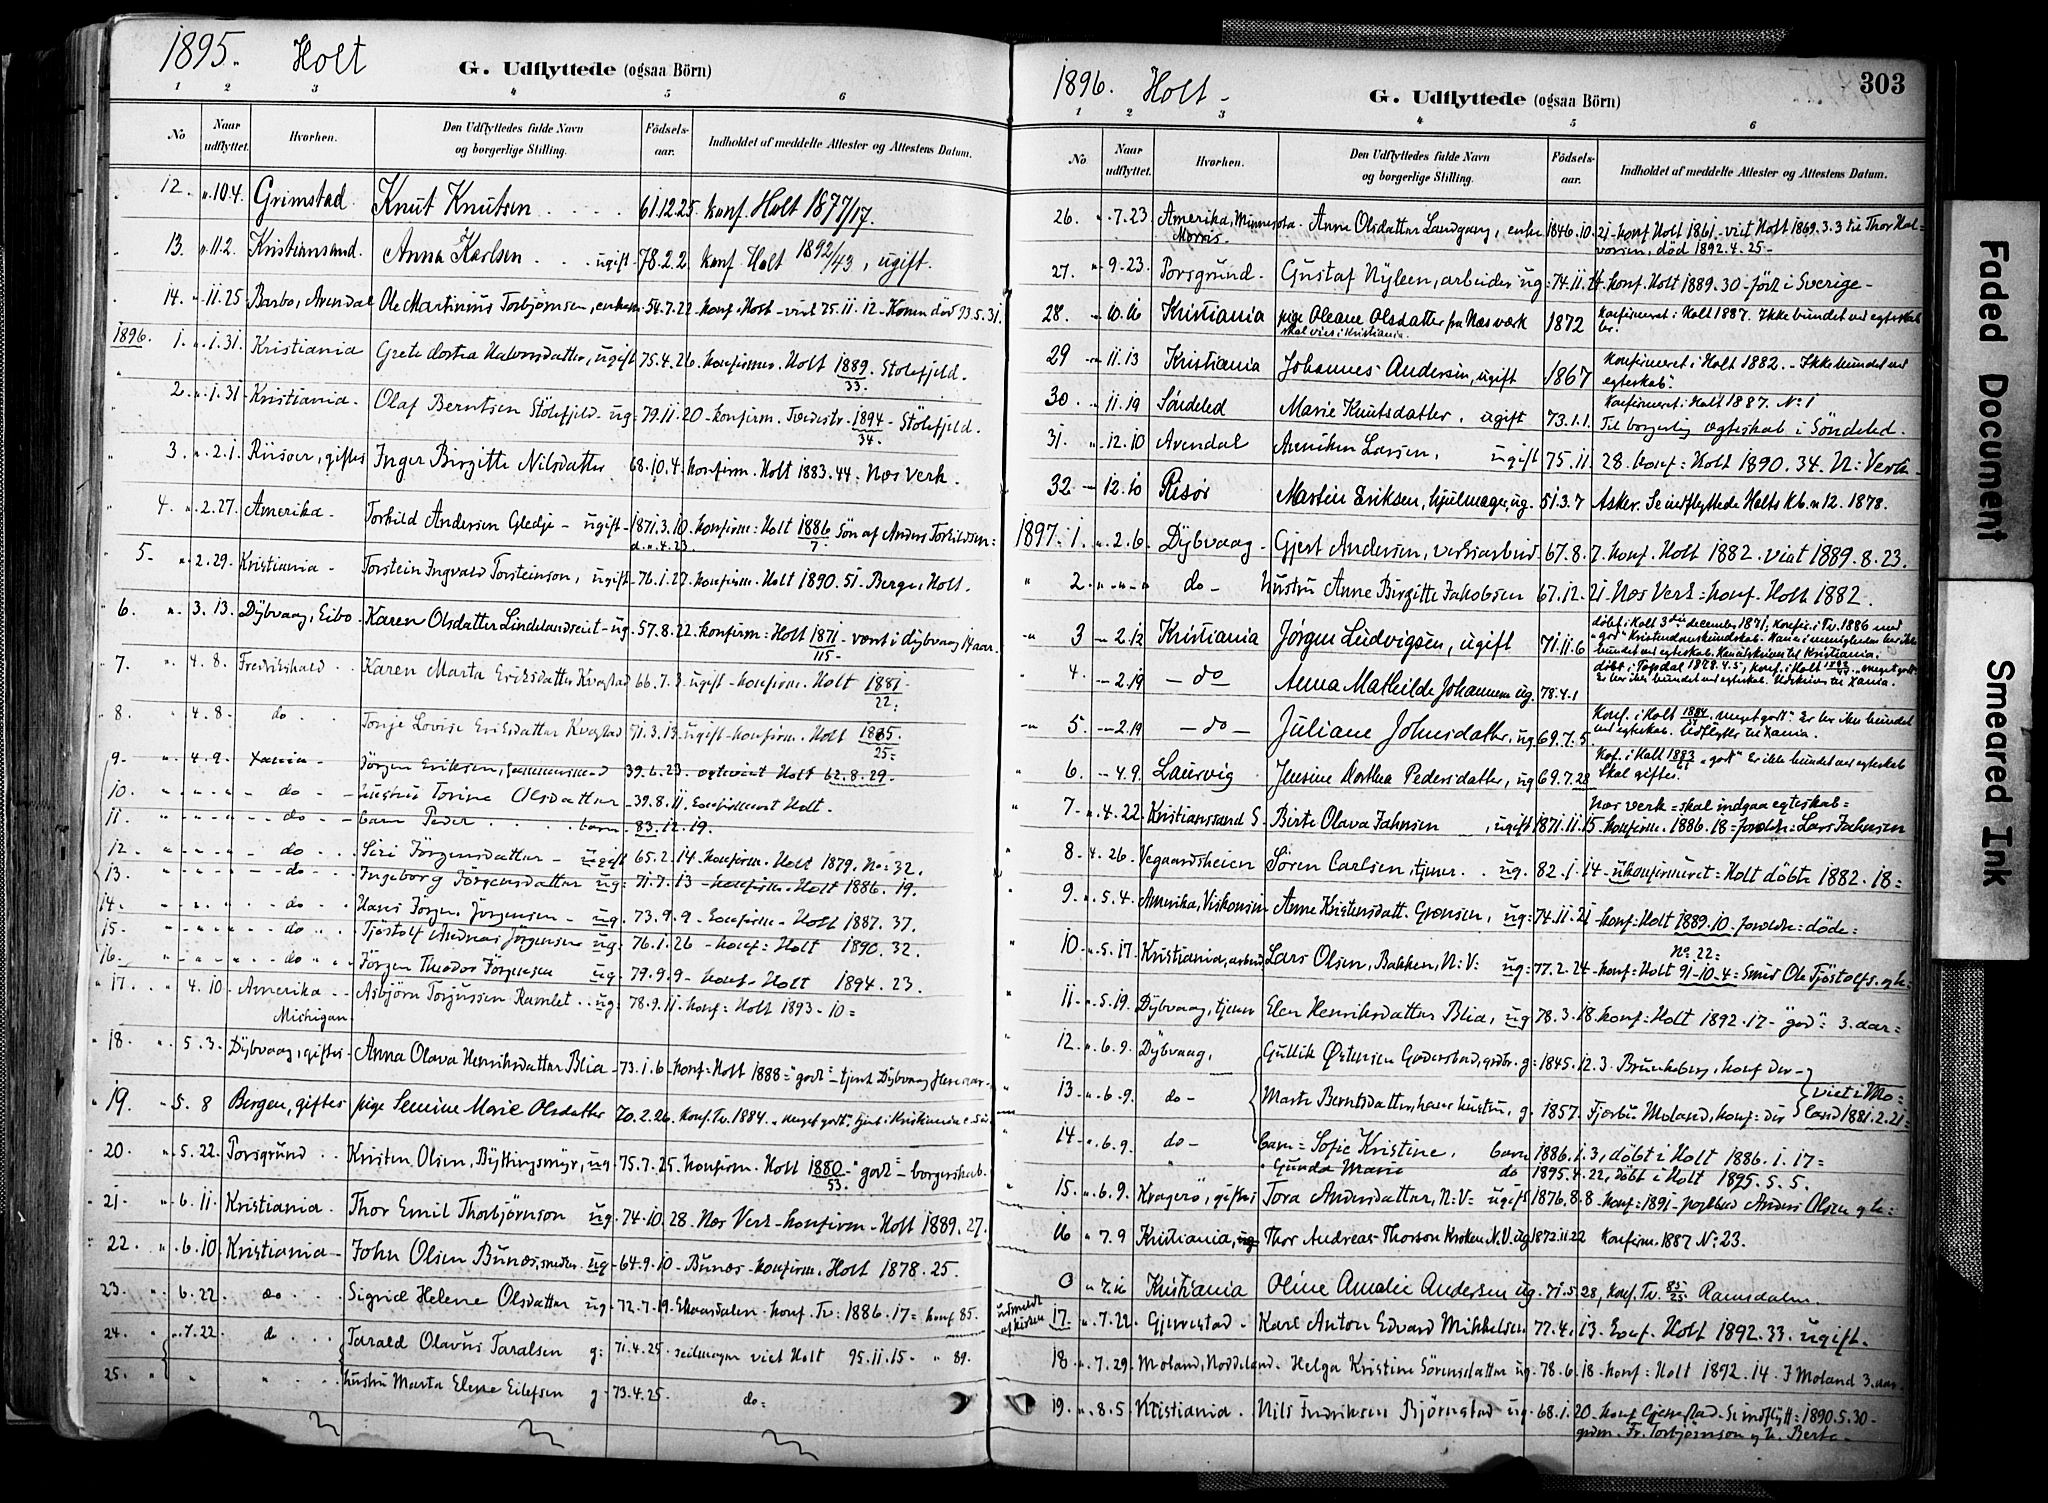 1895. Holt
G. Udflyttede (ogsaa Börn)
1 2 3 4 5 6
No Naar udflyttet. Hvorhen. Den Udflyttedes fulde Navn og borgerlige Stilling. Födsels-aar. Indholdet af meddelte Attester og Attestens Datum.
12. " 10.4. Grimstad. Knut Knutsen 61.12.25 konf. Holt 1877/17.
13. " 11.2. Kristiansand. Anna Karlsen ugift 78.2.2. konf. Holt 1892/43, ugift.
14. " 11.25 Barbo, Arendal Ole Martinius Torbjörnsen, 54.7.22 konf. Holt - viet 75.11.12 - Konen död 93.5.31.
1896. 1. " 1.31. Kristiania Grete Dortea Halvorsdatter, ugift 75.4.26 konfirmer. Holt 1889/33. Stölefjeld.
2. " 1.31 Kristiania. Olaf Berntsen Stölefjeld - ug: 79.11.20 - konfirm. Tvedestr. 1894/34. - Stölefjeld.
3. " 2.1. Riisoer, giftes Inger Birgitte Nilsdatter 68.10.4. konfirm. Holt 1883.44. Næs Verk.
4. " 2.27. Amerika - Torkild Andersen Gledje - ugift - 1871.3.10. konfirm: Holt 1886/7. Sön af Anders Torkildsen =
d. " 4.23.
5. " 2.29. Kristiania - Torstein Ingvald Torsteinson, ugift 76.1.27. konfirm: Holt 1890.51. Berge, Holt.
6. " 3.13. Dÿbvaag, Eibo Karen Olsdatter Lindelandseiet - ug - 57.8.22. konfirm: Holt 1871/115 - vært i dÿbvaag 14 aar.
7. " 4.8. Fredrikshald Karen Marta Eriksdatter Kvastad 66.7.3 ugift - konfirm. Holt 1881/22:
8. " 4.8 - do Tonje Lovise Eriksdatter Kvastad 71.3.13 ugift - konfirm. Holt 1885/25:
9. " 4.9. Xania - Jörgen Eriksen, 39.6.23. viet Holt 62.8.29.
10. " " do - hustru Torine Olsdatter 39.8.11. konfirmert Holt.
11. " " do - barn Peder barn 83.12.19.
12. " " do. Siri Jörgensdatter - ugift 65.2.14 konfirm. Holt 1879. No: 32.
13. " " do Ingeborg Jörgensdatter ug: 71.7.13 konfirm. Holt 1886.19.
14. " " do. Hans Jörgen Jörgensen - ug. 73.9.9 - konfirm - Holt 1887.37.
15. " " do Tjöstolf Andreas Jörgensen ug: 76.1.26 - konf = Holt 1890.32.
16. " " do Jörgen Theodor Jörgensen ug: 79.9.9 - konf. Holt 1894.23.
17. " 4.10 Amerika Asbjörn Torjussen Ramlet ug: 78.9.11 - konf = Holt 1893 - 10 =
Michigan
18. " 5.3. Dÿbvaag, giftes - Anna Olava Henriksdatter Blia - 73.1.6 - konf = Holt 1888 = "godt" - tjent Dÿbvaag
19. " 5.8 Bergen, giftes pige Semine Marie Olsdatter 70.2.26. konf. Tv. 1884. " meget godt".
20. " 5.22 Porsgrund Kristen Olsen, Bÿttingsmÿr, ug 75.7.25. konfirm. Holt 1880/53. - "godt" - borgerskab.
21. " 6.11. Kristiania. Thor Emil Thorbjörnson ug 74.10.28. Næs Verk - konfirm - Holt 1889.27.
22. " 6.10 Kristiania - John Olsen Bunæs, snedker ug - 64.9.10 - Bunæs - konfirm. Holt 1878.25.
23. " 6.22 do Sigrid Helene Olsdatter ug 72.7.19. konf. Tv. 1886.17 = 85.
24. " 7.22 do Tarald Olavus Taralsen g: 71.4.25. viet Holt 95.11.15 - " 89.
25. hustru Marta Elene Eilefsen g 73.4.25. do:
1896. Holt - 303
G. Udflyttede (ogsaa Börn)
1 2 3 4 5 6
No Naar udflyttet. Hvorhen. Den Udflyttedes fulde Navn og borgerlige Stilling. Födsels-aar. Indholdet af meddelte Attester og Attestens Datum.
26. " 7.23. Amerika, Minnesota. Anne Olsdatter Landgang, enke 1846.10.21 - konf. Holt 1861 - viet Holt 1869.3.3 til Thor Hal=
Morris. vorsen, död 1892.4.25 -
27. " 9.23. Porsgrund. Gustaf Nÿleen, arbeider ug: 74.11.14. konf. Holt 1889.30 - född i Sverige -
28. " 10.16 Kristiania pige Oleane Olsdatter fra Næsværk 1872 Konfirmeret i Holt 1887. Ikke bundet ved egteskab
skal vies i Kristiania.
29 " 11.13 Kristiania Johannes Andersen, ugift 1867 Konfirmeret i Holt 1882. - Ikke bundet ved
egteskab.
30. " 11.19 Söndeled Marie Knutsdatter, ugift 73.1.1. Konfirmeret i Holt 1887. No 1
Til borgerlig ægteskab i Söndeled.
31. " 12.10 Arendal Anniken Larsen, ugift 75.11.28. konf: Holt 1890.34. N: Verk -
32 - 12.10 Risör Martin Eriksen, hjulmager, ug. 51.3.7 Asker. Se indflyttede Holts Kb. n 12. 1878.
1897. 1. " 2.6. Dÿbvaag - Gjert Andersen, verksarbeid 67.8.7. konf. Holt 1882. viet 1889.8.23.
2. " " do - hustru Anne Birgitte Jakobsen 67.12.21 Næs Verk = konf. Holt 1882.
3 - 2.12 Kristiania Jörgen Ludvigsen, ugift 71.11.6 döbt i Holt 3die december 1871, konfir. i Tv. 1886 med
"god" Kristendomskundskab.
bundet ved egteskab. til Kristiania.
4. - 2.19 - do - Anna Mathilde Johannesen ug. 78.4.1 döbt i Topdal 1878.4.5, konf. i Holt "meget godt".
Er her ikke bundet ved egteskab. til Xania.
5. - 2.19 - do - Juliane Johnsdatter, ug 69.7.5. Konf. i Holt 1884 "meget godt". Er her ikke bundet
ved egteskab. Udflytter til Xania.
6. - 4.9. Laurvig Jensine Dorthea Pedersdatter, ug 69.7.28 Kof. i Holt 1883 "godt" Er ikke bundet ved egteskab
Skal giftes.
7 - " 4.22. Kristianssand S. Birte Olava Jahnsen, ugift 1871.11.15 - konfirm. 1886.18 = foreldre: Lars Jahnsen
Næs verk = skal indgaa egteskab =
8. " 4.26. Vegaardsheien Sören Carlsen, tjener ug. 82.1.14 - ukonfirmeret = Holt döbt 1882.18 =
9. " 5.4. Amerika, Viskonsin Anne Kristensdatt. Grönsen, ug: 74.11.21 - konf: Holt 1889.10. foreldre = döde =
No 22 =
10 " 5.17. Kristiania, arbeid Lars Olsen, Bakken, N: V: ug: 77.2.24 - konf: Holt 91 - 10.4 = Smed Ole Tjöstolfs. og h:
11. " 5.19. Dÿbvaag, tjener Elen Henriksdatter Blia, ug 78.3.18. konf: Holt 1892.17 - "god": 3. aar=
12. " 6.9. Dÿbvaag, Gullik Östensen Goderstad, grdbr. g: 1845.12.3. Brunkeberg, konf. der -
13. " 6.9. do - Marte Berntsdatter, hans hustru, g. 1857. Fjærbu Moland, konf: der viet i Mo=
land 1881.2.21 =
14 - " 6.9. do - barn = Sofie Kristine, barn 1886.1.3, döbt i Holt 1886.1.17 =
" Gunda Marie do 1895.4.22, döbt i Holt 1895.5.5.
15. " 6.9. Kragerö, giftes Tora Andersdatter, N: V: ugift 1876.8.8 - konf: 1891 - Anders Olsen og h:
16 " 7.9 Kristiania, Thor Andreas Thorson Kroken N.V. ug 1872.11.22 Konfirm. 1887 No 23.
0 " 7.16 Kristiania Oline Amalie Andersen ug. 71.5.28, konf. Tv. 85/25 Ramsdalen.
udmeldt af kirken 17. " 7.22. Gjerrestad - Karl Anton Edvard Mikkelsen 77.4.13. konf. Holt 1892.33. ugift.
18 " 7.29. Moland, Noddeland - Helga Kristine Sörensdatter ug. 78.6.18 - konf: Holt 1892.14. I Moland 3. aar.
19. " 8.5. Kristiania. Nils Fredriksen Björnstad ug. 68.1.20 - konf. Gjerrestad. Se indflytt: 1890.5.30 -
Fr. Torbjörnson og h. Berte -
Faded Document
Smeared Ink